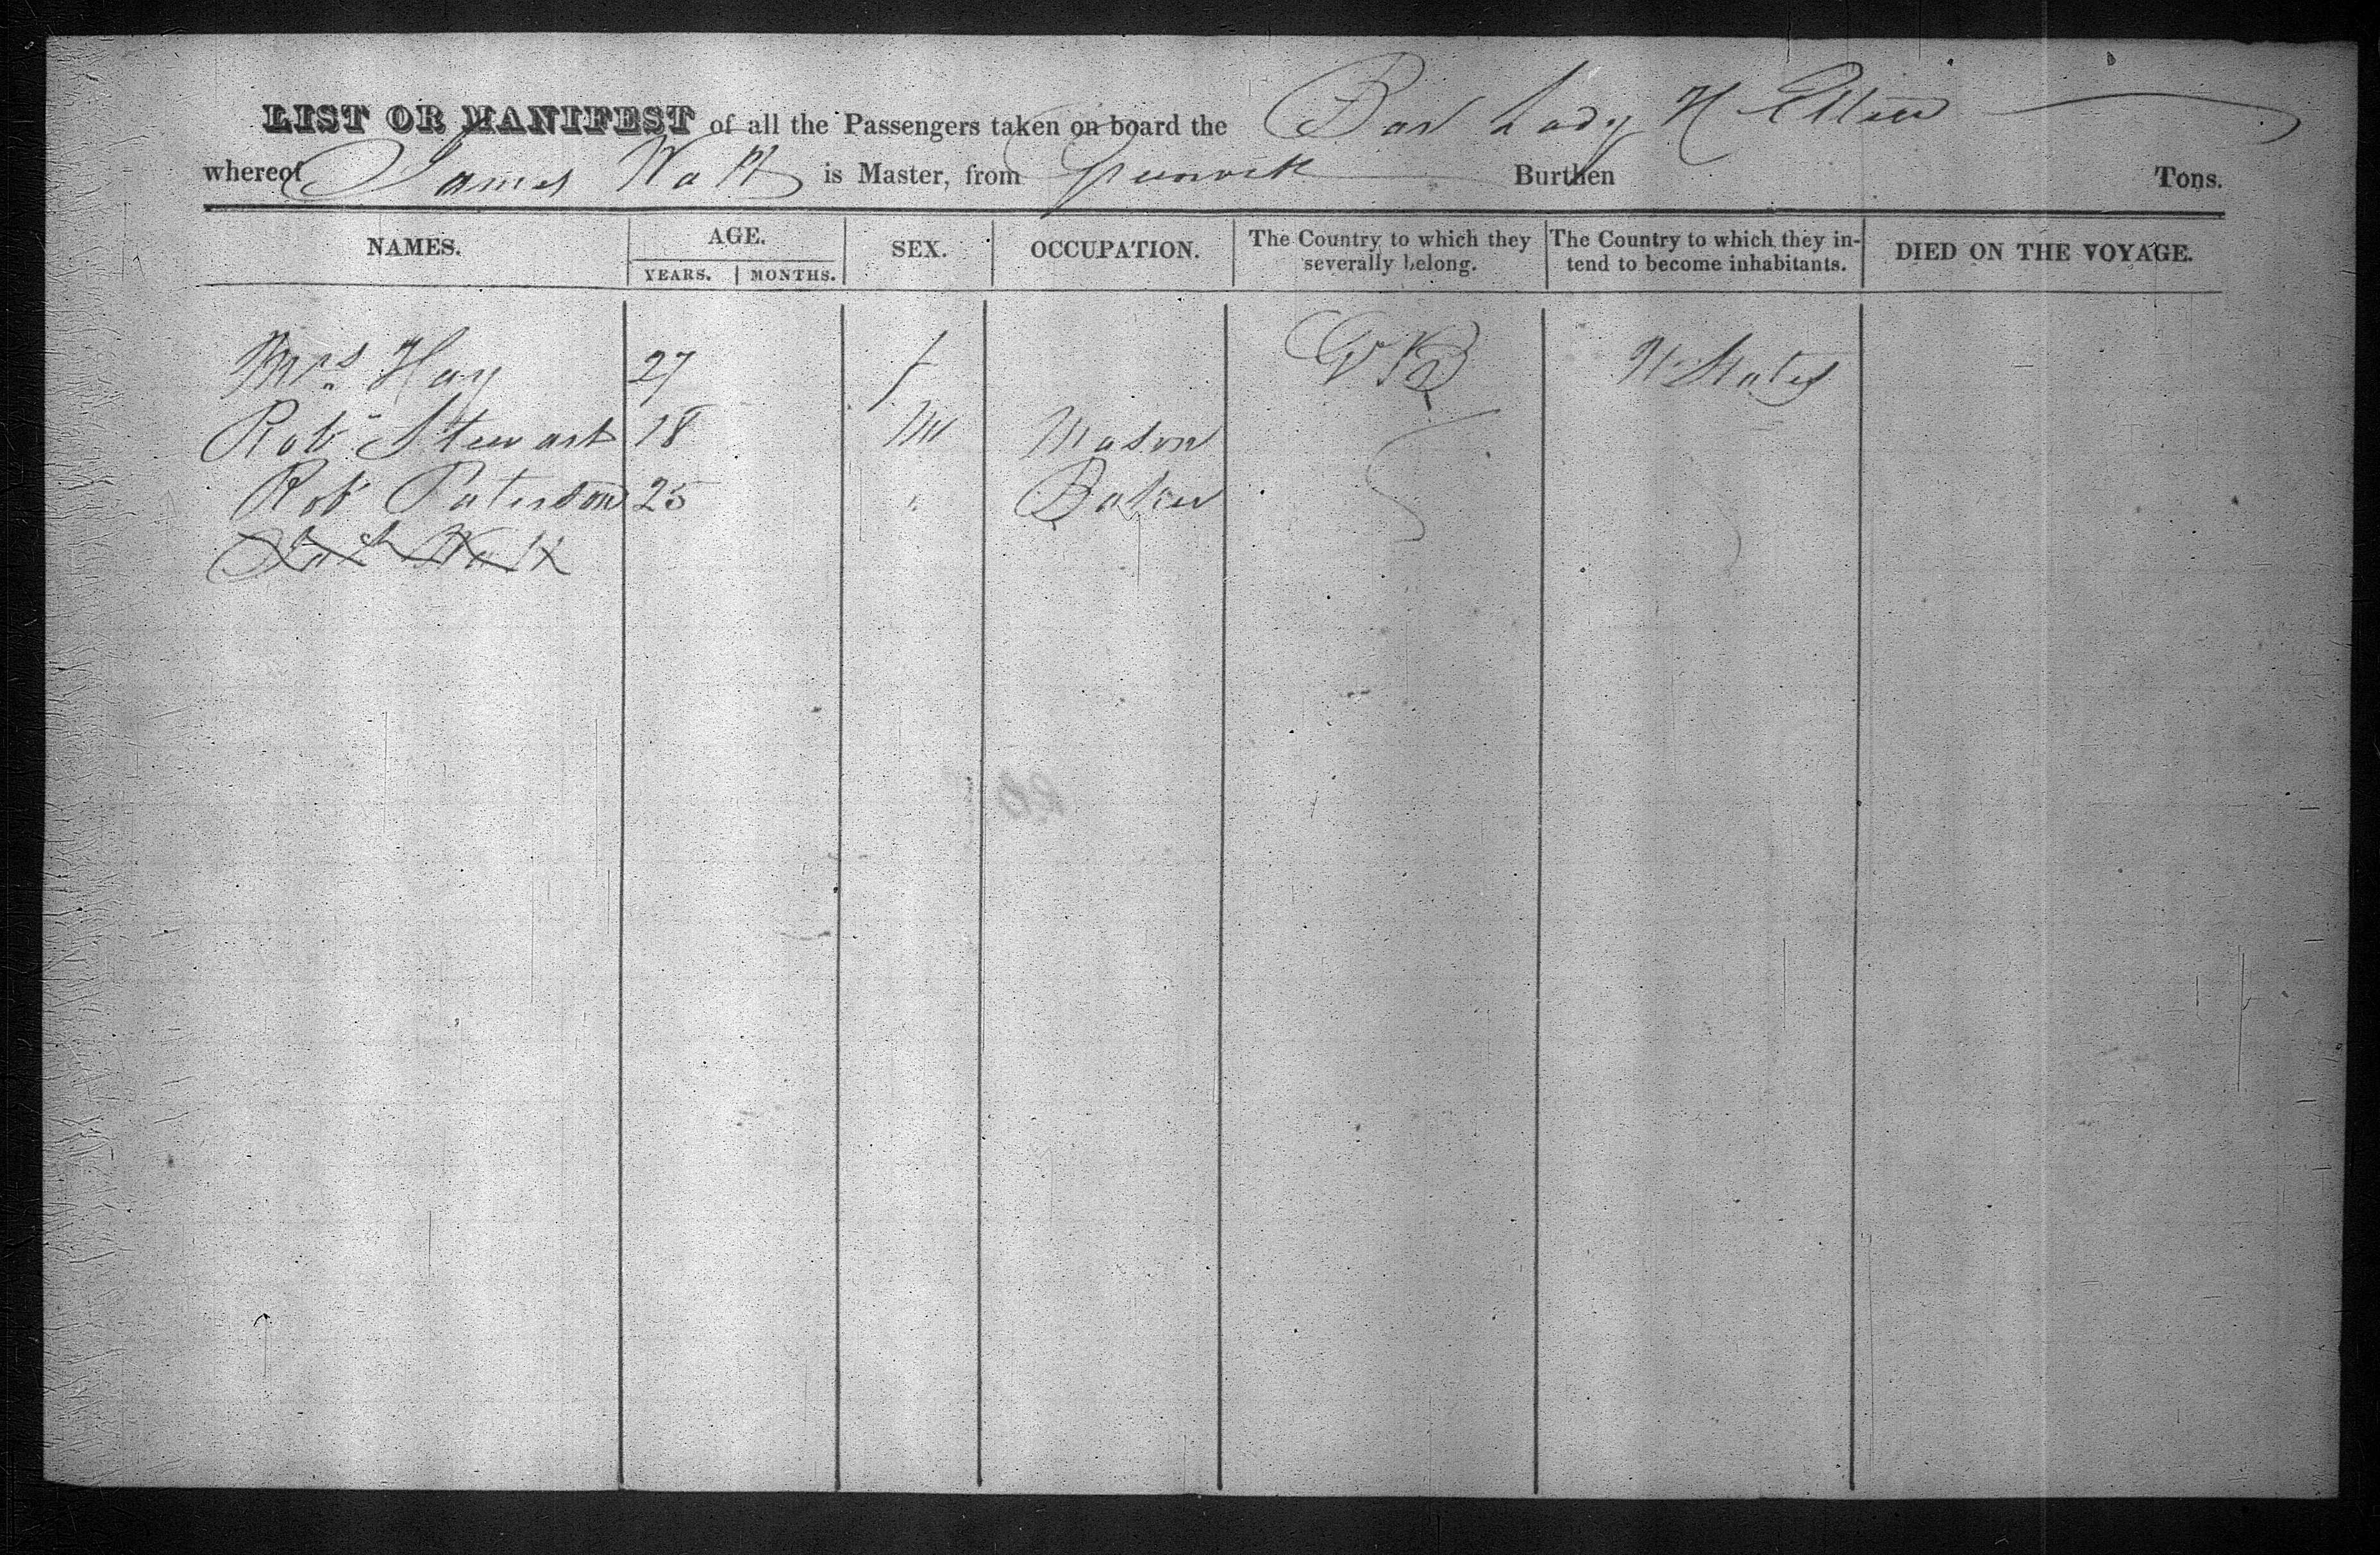 LIST OR MANIFEST of all the Passengers taken on board the Lady
whereof James Watt is Master, from Greenock Burthen Tons.
NAMES. AGE. SEX. OCCUPATION. The Country to which they severally belong. The Country to which they intend to become inhabitants. DIED ON THE VOYAGE.
YEARS. MONTHS.
Mrs Hay 27 f U States
Robt Stewart 18 M Mason
Robt Paterson 25 " Baker